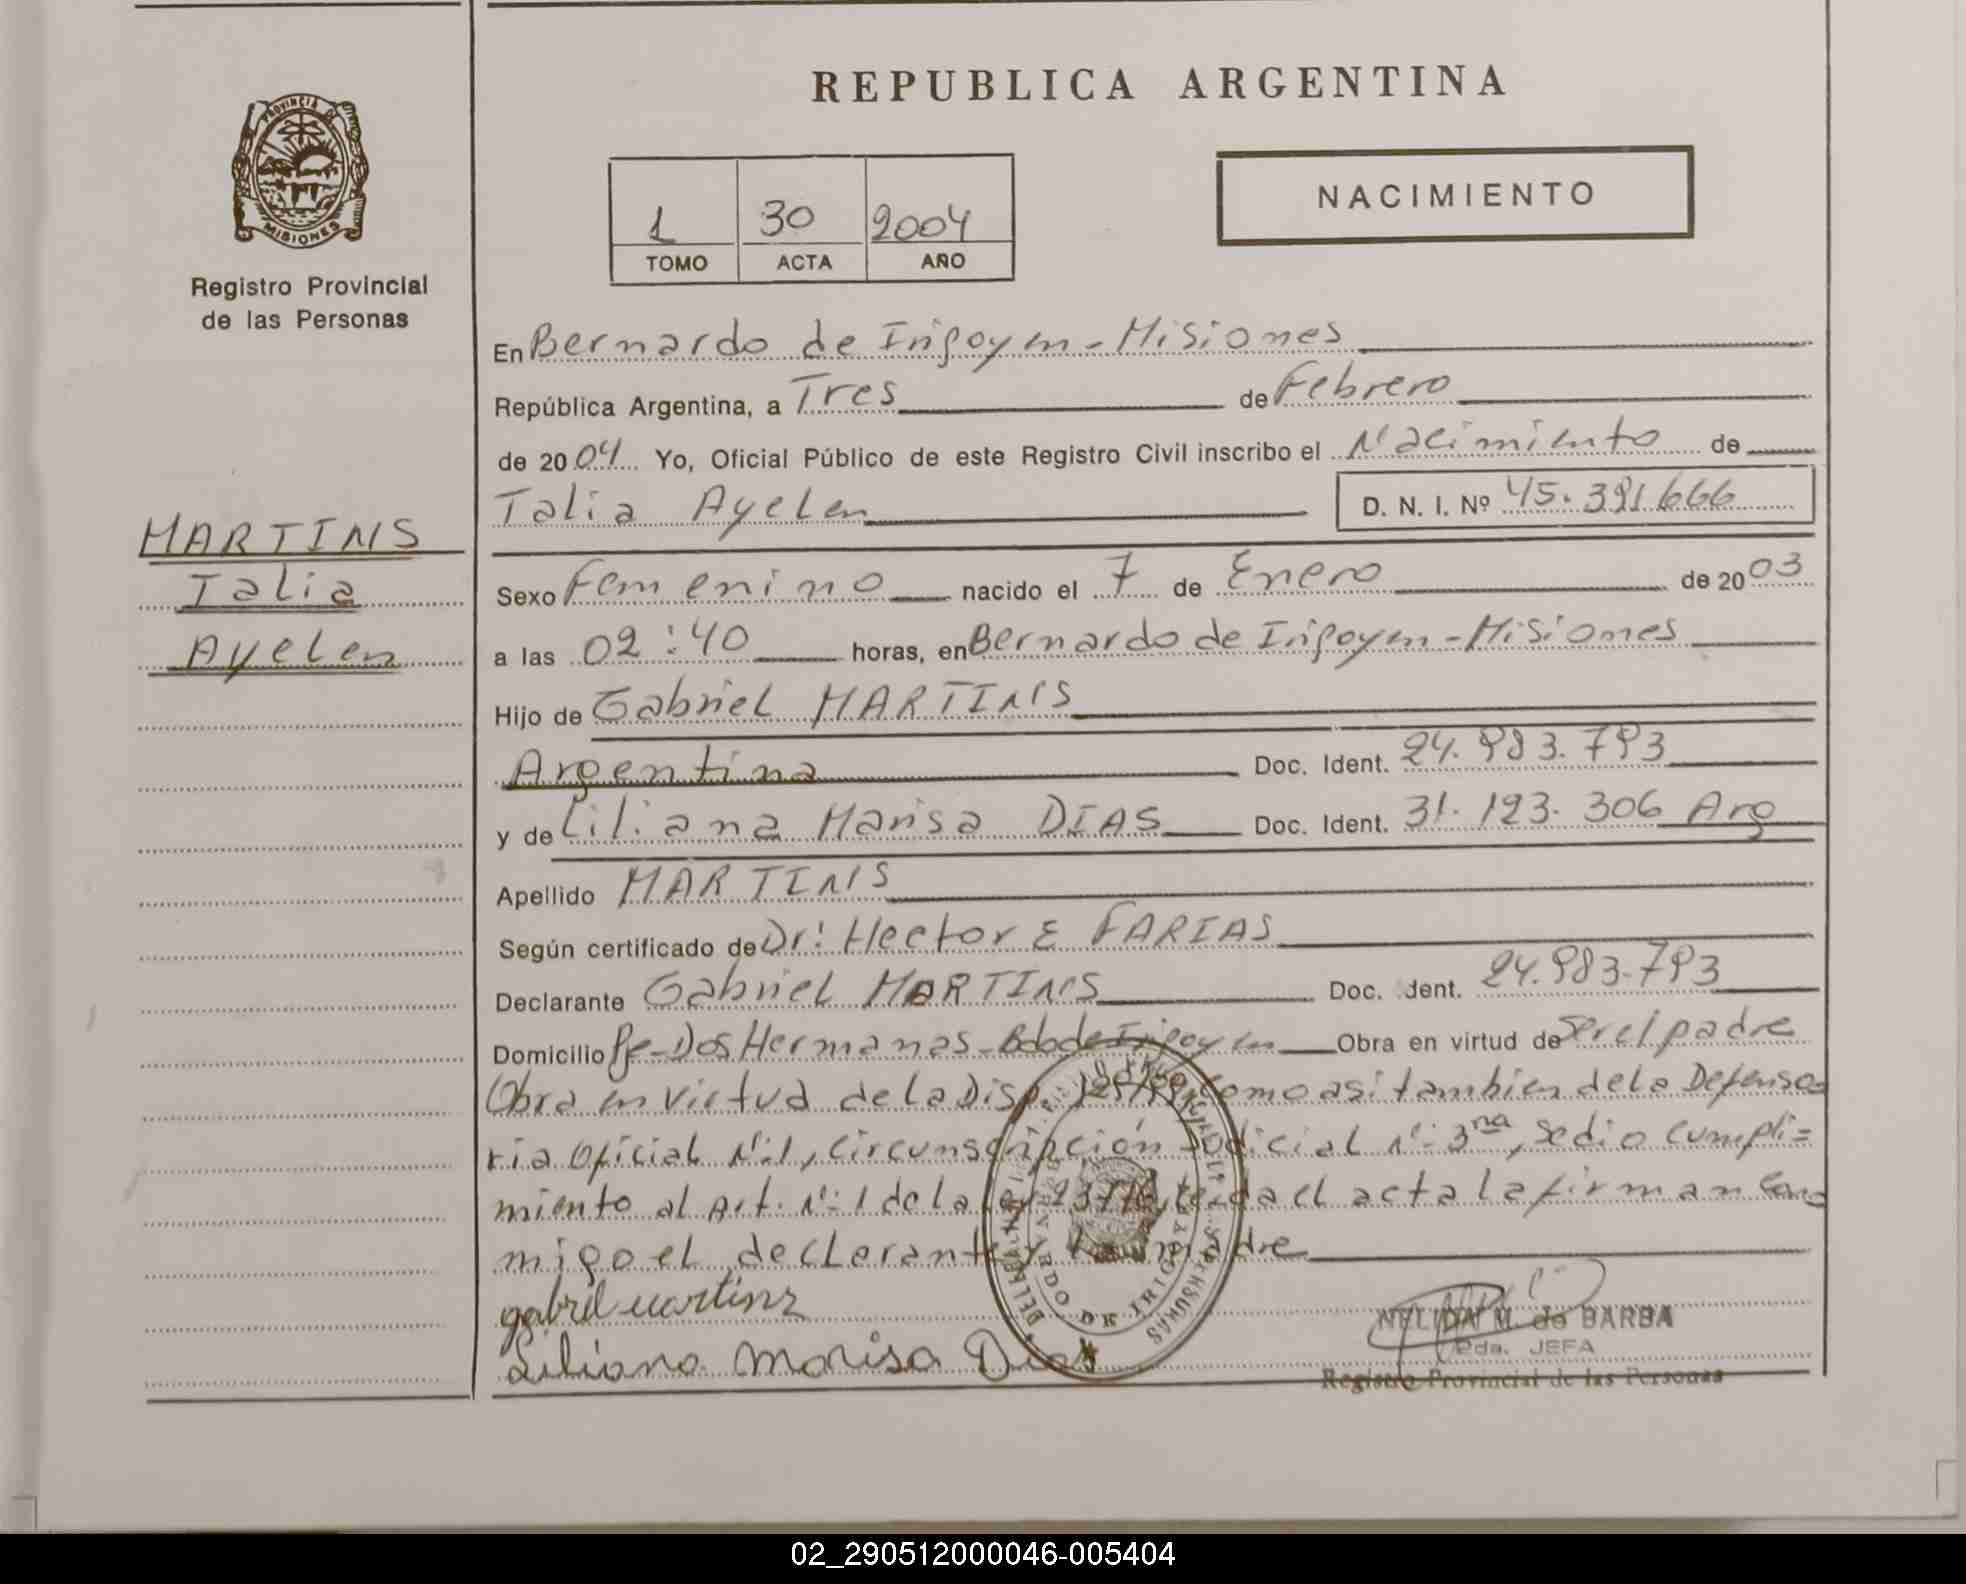 REPUBLICA ARGENTINA
PROVINCIA DE
MISIONES
Registro Provincial
de las Personas
1 30 2004
TOMO ACTA AÑO
NACIMIENTO
MARTINS
Talia
Ayelen
En Bernardo de Irigoyen - Misiones
República Argentina, a Tres de Febrero
de 2004 Yo, Oficial Público de este Registro Civil inscribo el Nacimiento de
Talia Ayelen D. N. I. Nº 45.391.666
Sexo Femenino nacido el 7 de Enero de 2003
a las 02:40 horas, en Bernardo de Irigoyen - Misiones
Hijo de Gabriel MARTINS
Argentina Doc. Ident. 24.983.793
y de Liliana Marisa DIAS Doc. Ident. 31.193.306 Arg
Apellido MARTINS
Según certificado de Dr: Hector E FARIAS
Declarante Gabriel MARTINS Doc. Ident. 24.983.793
Domicilio Pje - Dos Hermanas - Bdo de Irigoyen Obra en virtud de Ser el padre
Obra en virtud de la Disp. como asi tambien de la Defenso
ria Oficial Nº: 1, Circunscripción Judicial Nº: 3na, se dio cumpli=
miento al Art. Nº: 1 de la ley da el acta la firman con
migo el declarante
gabriel martins
Liliana Marisa Dias
NELIDA M. de BARBA
Pda. JEFA
Registro Provincial de las Personas
02_290512000046-005404